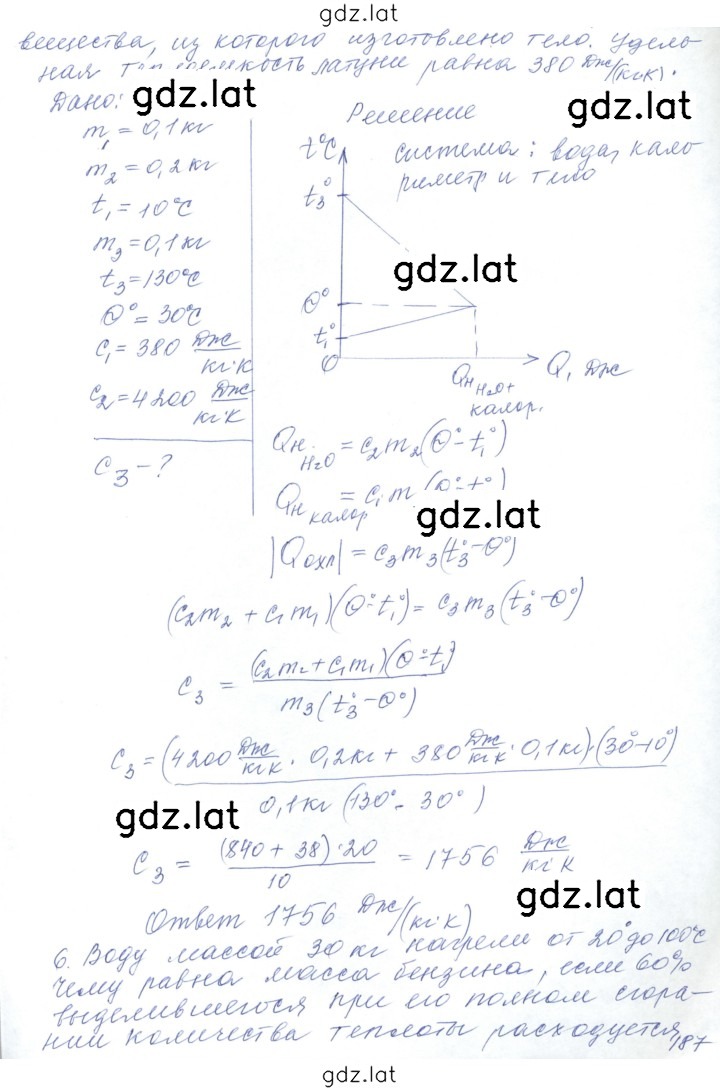 gdz.lat
вещества, из которого изготовлено тело. Удель-
ная равна 380 Дж/(кг·К).
латуни
Дано:
gdz.lat
Решение
m₁ = 0,1 кг
m₂ = 0,2 кг
t₁ = 10°C
m₃ = 0,1 кг
t₃ = 130°C
Θ° = 30°C
c₁ = 380 Дж/кг·К
c₂ = 4200 Дж/кг·К
c₃ - ?
система: вода, кало-
риметр и тело
t°C
t₃°
gdz.lat
Θ°
t₁°
0
Q, Дж
Qн H₂O+
калор.
Qн H₂O = c₂m₂(Θ° - t₁°)
Qн калор = c₁m
gdz.lat
|Qохл| = c₃m₃(t₃° - Θ°)
(c₂m₂ + c₁m₁)(Θ° - t₁°) = c₃m₃(t₃° - Θ°)
c₃ = (c₂m₂ + c₁m₁)(Θ° - t₁°) / m₃(t₃° - Θ°)
c₃ = (4200 Дж/кг·К · 0,2 кг + 380 Дж/кг·К · 0,1 кг)·(30° - 10°) / 0,1 кг (130° - 30°)
gdz.lat
c₃ = (840 + 38)·20 / 10 = 1756 Дж/кг·К
gdz.lat
Ответ 1756 Дж/(кг·К)
6. Воду массой 30 кг нагрели от 20° до 100°C
чему равна масса бензина, если 60%
выделившегося при его полном сгора-
нии количества теплоты расходуется
187
gdz.lat